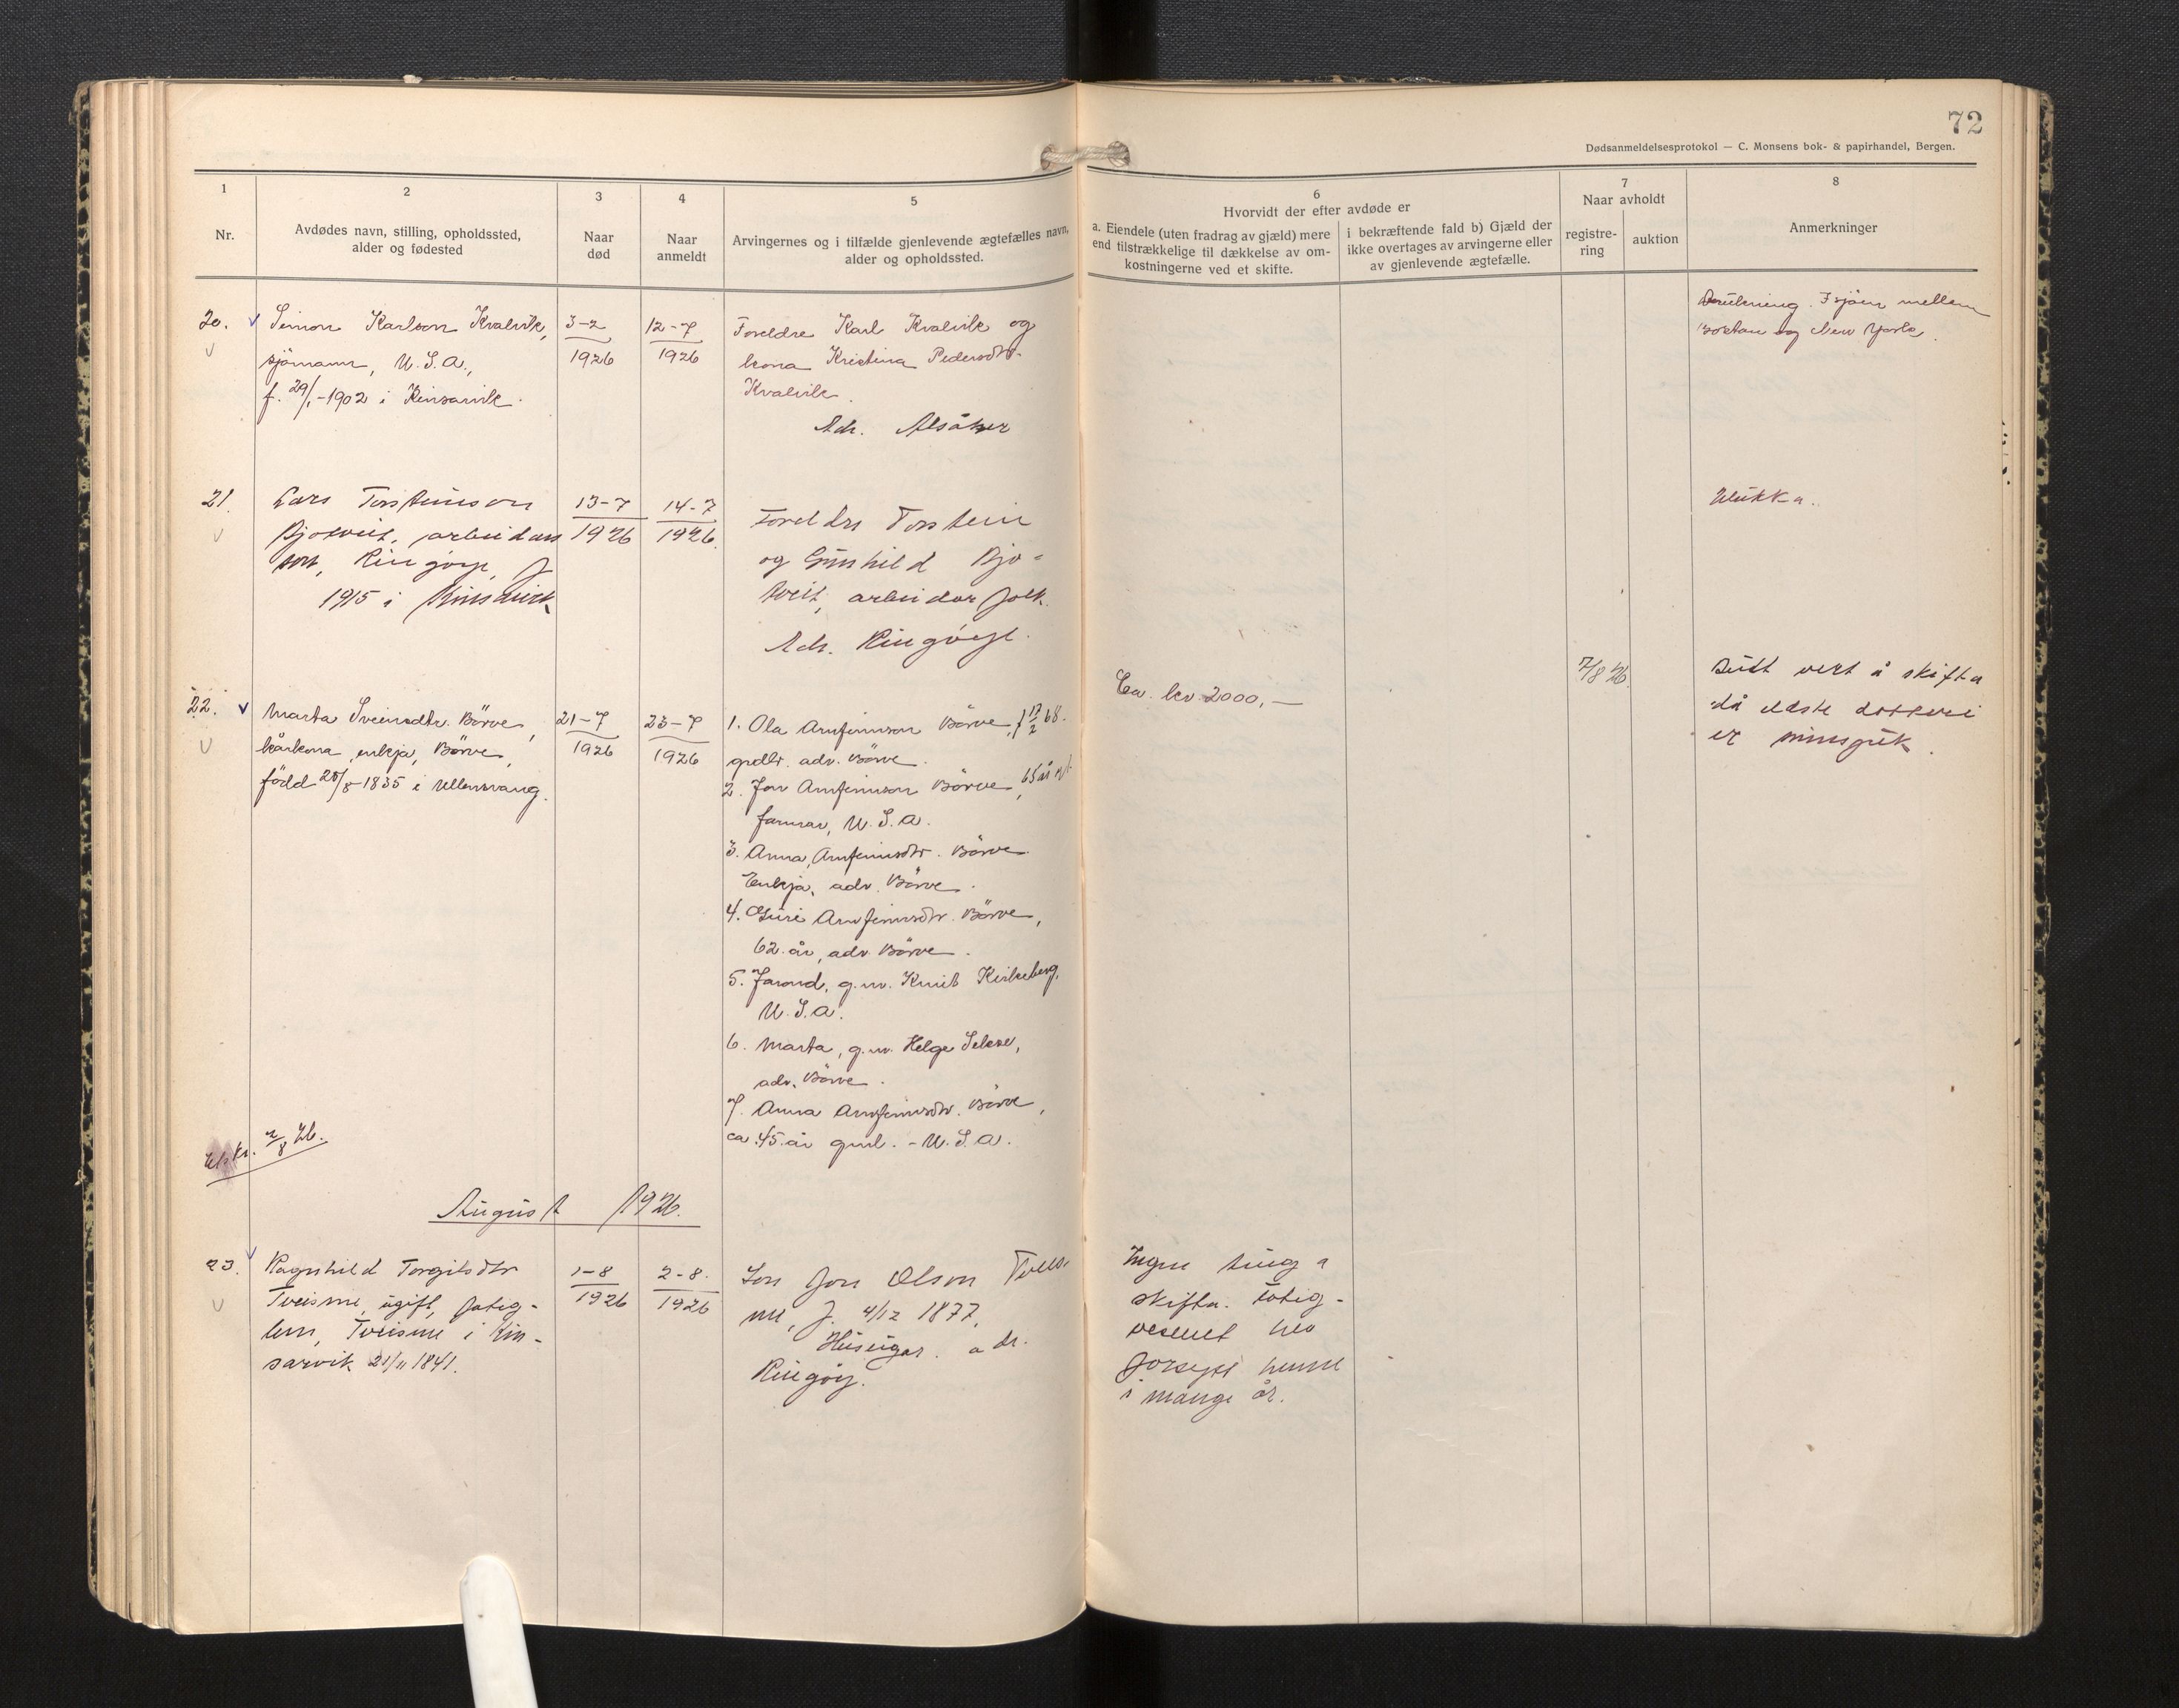 72
Dødsanmeldelsesprotokol — C. Monsens bok- & papirhandel, Bergen.
1
Nr.
2
Avdødes navn, stilling, opholdssted,
alder og fødested
3
Naar
død
4
Naar
anmeldt
5
Arvingernes og i tilfælde gjenlevende ægtefælles navn,
alder og opholdssted.
6
Hvorvidt der efter avdøde er
a. Eiendele (uten fradrag av gjæld) mere
end tilstrækkelige til dækkelse av om-
kostningerne ved et skifte.
i bekræftende fald b) Gjæld der
ikke overtages av arvingerne eller
av gjenlevende ægtefælle.
7
Naar avholdt
registre-
ring
auktion
8
Anmerkninger
20.
Simon Karlson Kvalvik,
sjömann, U. S. A.,
f. 29/1-1902 i Kinsarvik.
3-2
1926
12-7
1926
Foreldre Karl Kvalvik og
kona Kristina Pedersdtr.
Kvalvik.
Adr. Alsåker
Drukning. I sjöen mellem
Boston og New York.
21.
Lars Torsteinson
Bjotveit, arbeidars
son, Ringöy, f
1915 i Kinsarvik
13-7
1926
14-7
1926.
Foreldre Torstein
og Gunhild Bjo-
tveit, arbeidarfolk.
Adr. Ringöy.
Ulukka.
22.
Marta Sveinsdtr. Börve,
kårkona, enkja, Börve,
född 28/8-1835 i Ullensvang.
21-7
1926
23-7
1926
1. Ola Arnfinnson Börve, f 17/2 68.
grdbr. adr. Börve.
2. Jon Arnfinnson Börve, 65 år
farmar, U. S. A.
3. Anna Arnfinnsdtr. Börve
Enkja, adr. Börve.
4. Guri Arnfinnsdtr. Börve,
62 år, adr. Börve.
5. Jorond, g.m. Knut Kirkeberg,
U. S. A.
6. Marta, g.m. Helge Sekse,
adr. Börve.
7. Anna Arnfinnsdtr. Börve,
ca. 45 år - U. S. A.
Ca. kr. 2000,—
7/8 26.
Buet vert å skifta
då eldste dotteri
er sinnsjuk.
Utskr. 2/8 26.
August 1926.
23.
Ragnhild Torgilsdtr
Tveisme, ugift, fatig-
lem, Tveisme i Kin-
sarvik 21/11 1841.
1-8
1926
2-8.
1926
Son Jon Olson Tveis-
me, f. 4/12 1877,
Huseigar. adr.
Ringöy.
Ingen ting å
skifta. Fatig-
vesenet har
forsygt henne
i mange år.